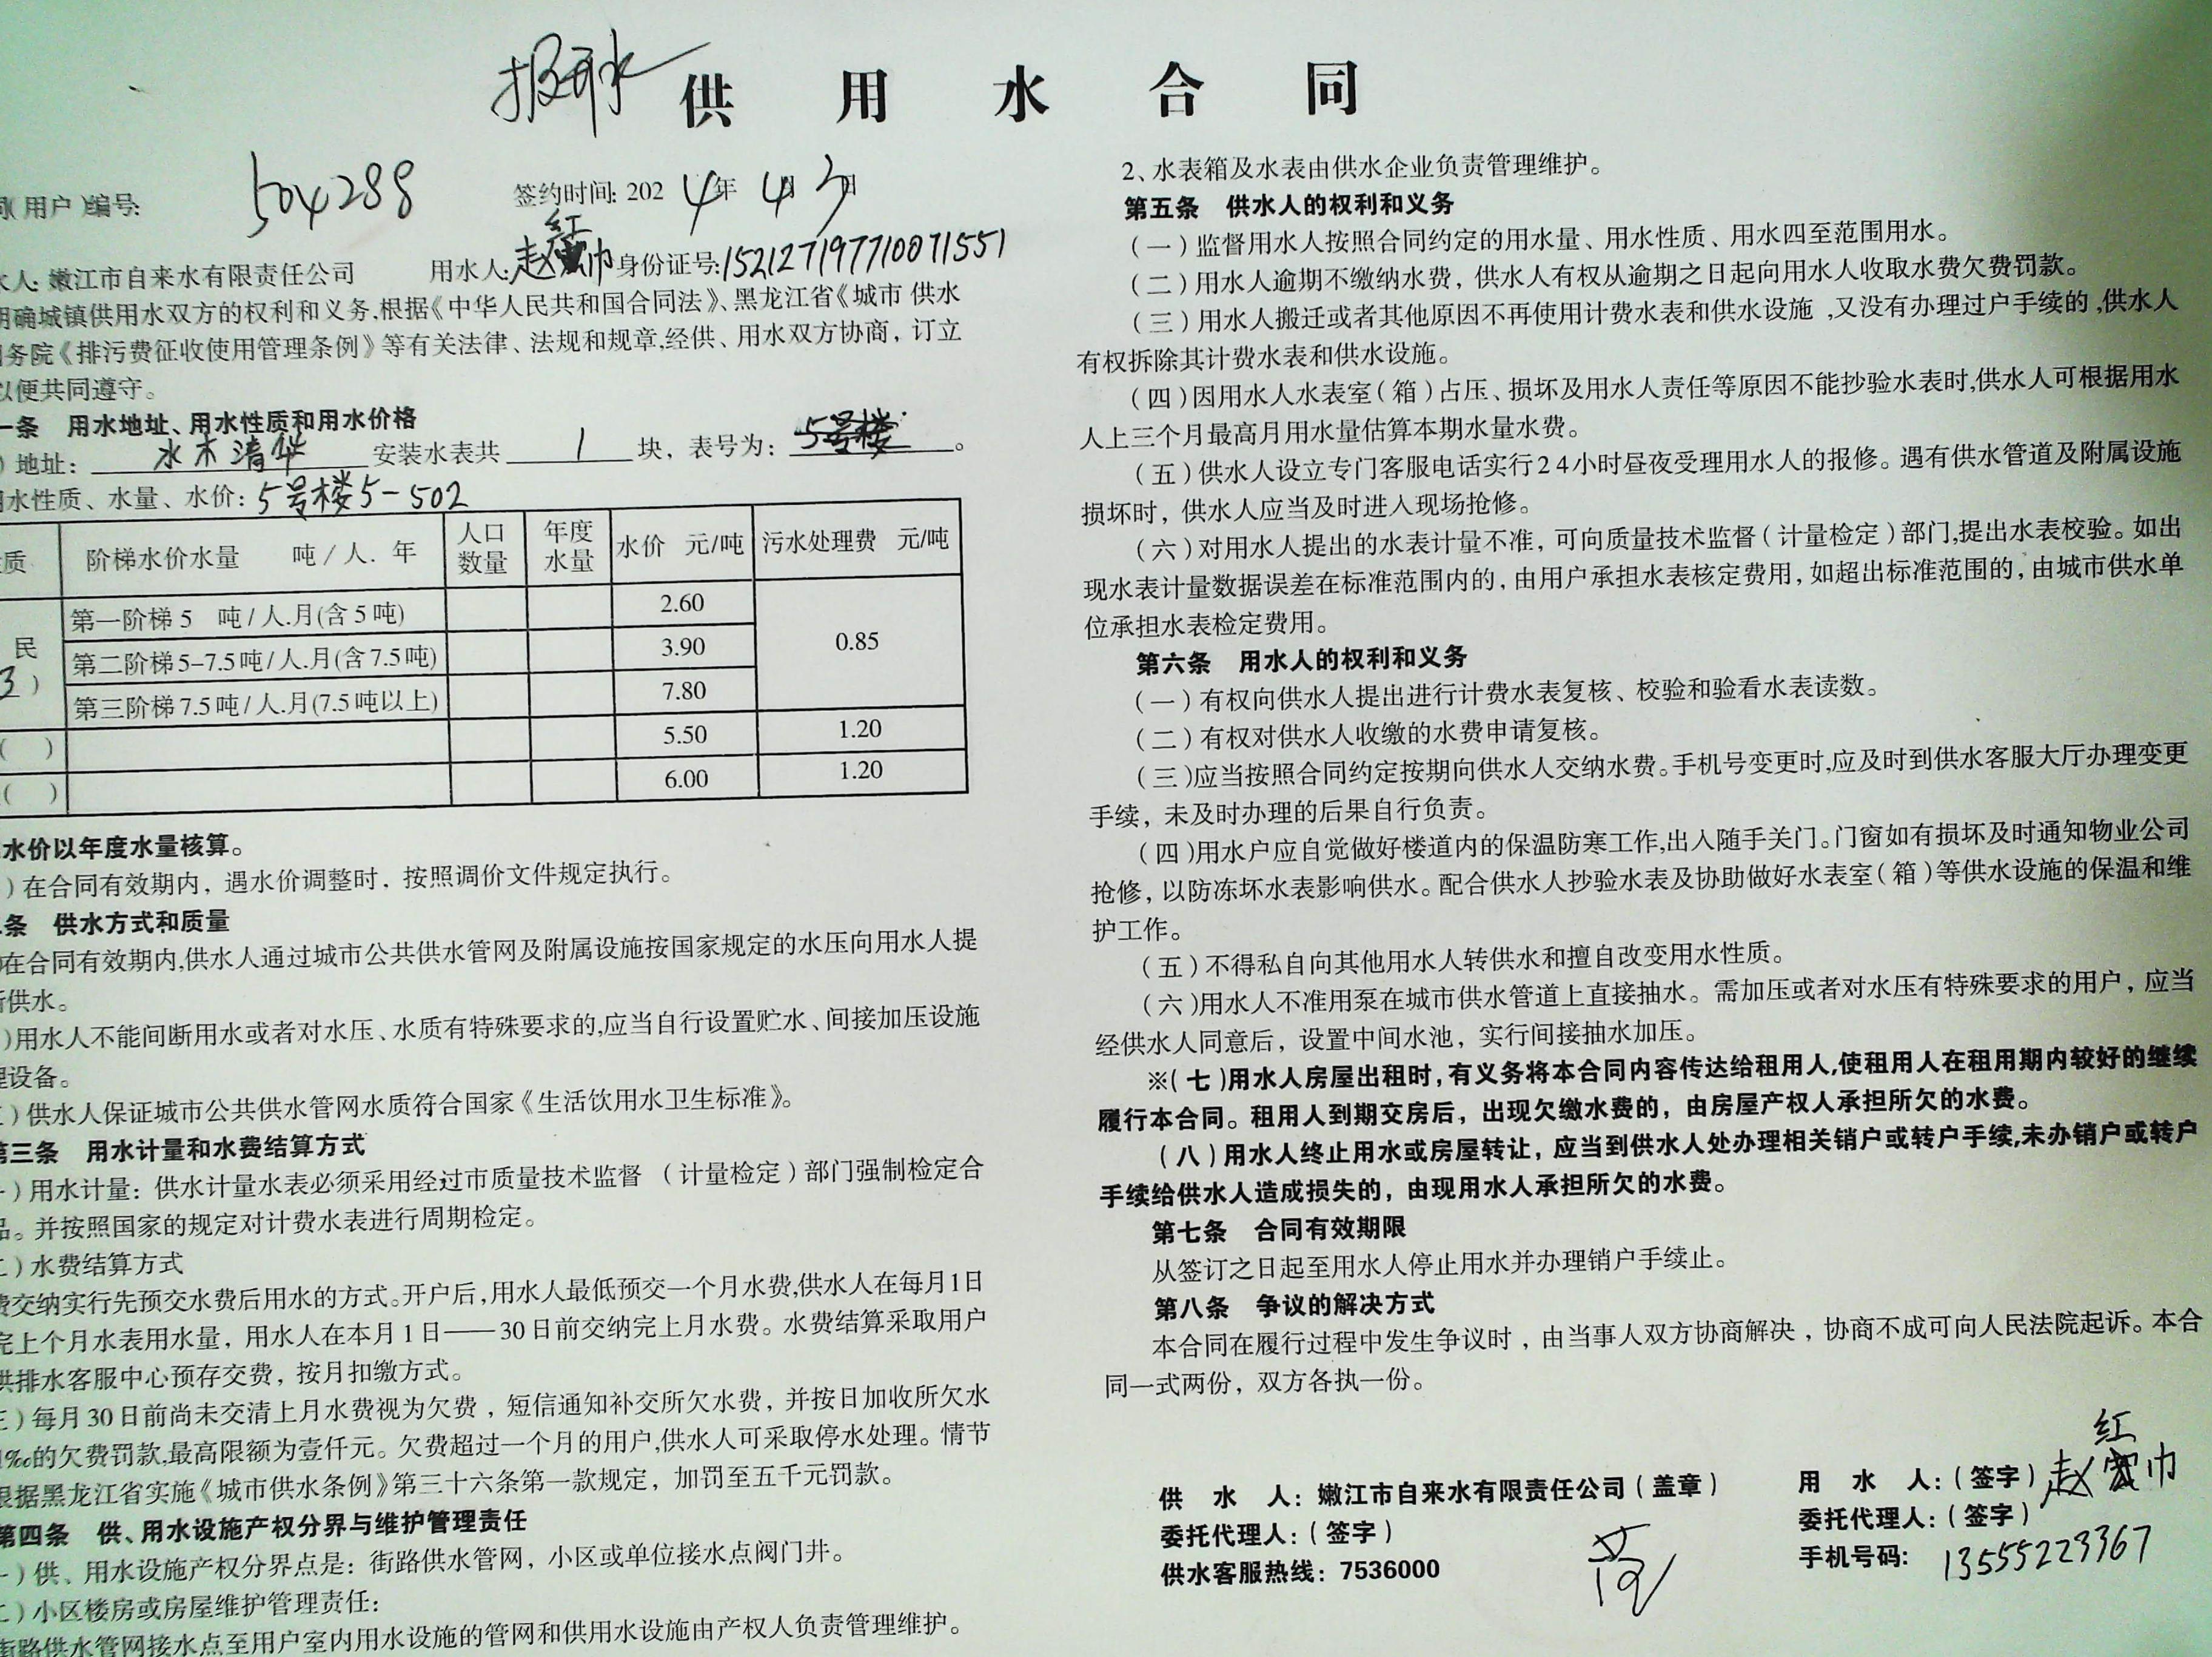 报开水
供用水合同
同(用户)编号: 504288 签约时间: 2024年4月3日
水人: 嫩江市自来水有限责任公司 用水人: 赵红巾 身份证号: 152127197710071551
明确城镇供用水双方的权利和义务,根据《中华人民共和国合同法》、黑龙江省《城市 供水
国务院《排污费征收使用管理条例》等有关法律、法规和规章,经供、用水双方协商，订立
以便共同遵守。
一条 用水地址、用水性质和用水价格
)地址: 水木清华 安装水表共 1 块，表号为: 5号楼 。
用水性质、水量、水价: 5号楼5-502
质 阶梯水价水量 吨/人.年 人口数量 年度水量 水价 元/吨 污水处理费 元/吨
民 3 ) 第一阶梯5 吨/人.月(含5吨) 2.60 0.85
第二阶梯5-7.5吨/人.月(含7.5吨) 3.90
第三阶梯7.5吨/人.月(7.5吨以上) 7.80
( ) 5.50 1.20
( ) 6.00 1.20
水价以年度水量核算。
)在合同有效期内，遇水价调整时，按照调价文件规定执行。
条 供水方式和质量
)在合同有效期内,供水人通过城市公共供水管网及附属设施按国家规定的水压向用水人提
供水。
)用水人不能间断用水或者对水压、水质有特殊要求的,应当自行设置贮水、间接加压设施
理设备。
)供水人保证城市公共供水管网水质符合国家《生活饮用水卫生标准》。
第三条 用水计量和水费结算方式
一)用水计量：供水计量水表必须采用经过市质量技术监督 (计量检定)部门强制检定合
品。并按照国家的规定对计费水表进行周期检定。
二)水费结算方式
费交纳实行先预交水费后用水的方式。开户后,用水人最低预交一个月水费,供水人在每月1日
完上个月水表用水量，用水人在本月1日——30日前交纳完上月水费。水费结算采取用户
供排水客服中心预存交费，按月扣缴方式。
三)每月30日前尚未交清上月水费视为欠费，短信通知补交所欠水费，并按日加收所欠水
‰的欠费罚款,最高限额为壹仟元。欠费超过一个月的用户,供水人可采取停水处理。情节
根据黑龙江省实施《城市供水条例》第三十六条第一款规定，加罚至五千元罚款。
第四条 供、用水设施产权分界与维护管理责任
一)供、用水设施产权分界点是：街路供水管网，小区或单位接水点阀门井。
二)小区楼房或房屋维护管理责任：
街路供水管网接水点至用户室内用水设施的管网和供用水设施由产权人负责管理维护。
2、水表箱及水表由供水企业负责管理维护。
第五条 供水人的权利和义务
(一)监督用水人按照合同约定的用水量、用水性质、用水四至范围用水。
(二)用水人逾期不缴纳水费，供水人有权从逾期之日起向用水人收取水费欠费罚款。
(三)用水人搬迁或者其他原因不再使用计费水表和供水设施 ,又没有办理过户手续的,供水人
有权拆除其计费水表和供水设施。
(四)因用水人水表室(箱)占压、损坏及用水人责任等原因不能抄验水表时,供水人可根据用水
人上三个月最高月用水量估算本期水量水费。
(五)供水人设立专门客服电话实行24小时昼夜受理用水人的报修。遇有供水管道及附属设施
损坏时，供水人应当及时进入现场抢修。
(六)对用水人提出的水表计量不准，可向质量技术监督(计量检定)部门,提出水表校验。如出
现水表计量数据误差在标准范围内的，由用户承担水表核定费用，如超出标准范围的，由城市供水单
位承担水表检定费用。
第六条 用水人的权利和义务
(一)有权向供水人提出进行计费水表复核、校验和验看水表读数。
(二)有权对供水人收缴的水费申请复核。
(三)应当按照合同约定按期向供水人交纳水费。手机号变更时,应及时到供水客服大厅办理变更
手续，未及时办理的后果自行负责。
(四)用水户应自觉做好楼道内的保温防寒工作,出入随手关门。门窗如有损坏及时通知物业公司
抢修，以防冻坏水表影响供水。配合供水人抄验水表及协助做好水表室(箱)等供水设施的保温和维
护工作。
(五)不得私自向其他用水人转供水和擅自改变用水性质。
(六)用水人不准用泵在城市供水管道上直接抽水。需加压或者对水压有特殊要求的用户，应当
经供水人同意后，设置中间水池，实行间接抽水加压。
※(七)用水人房屋出租时,有义务将本合同内容传达给租用人,使租用人在租用期内较好的继续
履行本合同。租用人到期交房后，出现欠缴水费的，由房屋产权人承担所欠的水费。
(八)用水人终止用水或房屋转让，应当到供水人处办理相关销户或转户手续,未办销户或转户
手续给供水人造成损失的，由现用水人承担所欠的水费。
第七条 合同有效期限
从签订之日起至用水人停止用水并办理销户手续止。
第八条 争议的解决方式
本合同在履行过程中发生争议时，由当事人双方协商解决，协商不成可向人民法院起诉。本合
同一式两份，双方各执一份。
供 水 人：嫩江市自来水有限责任公司(盖章) 用 水 人：(签字) 赵红巾
委托代理人：(签字) 委托代理人：(签字)
供水客服热线：7536000 手机号码: 13555223367